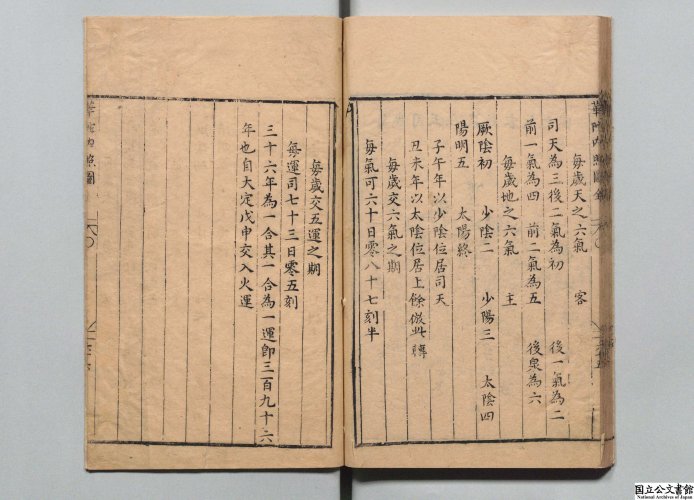 每歲天之六氣　客
司天為三後二氣為初　後一氣為二
前一氣為四　前二氣為五　後泉為六
每歲地之六氣　主
厥陰初　少陰二　少陽三　太陰四
陽明五　太陽終
子午年以少陰位居司天
丑未年以太陰位居上餘倣此轉
每歲交六氣之期
每氣可六十日零八十七刻半
每歲交五運之期
每運司七十三日零五刻
三十六年為一合其一合為一運卽三百九十六
年也自大定戊申交入火運
華佗內照圖
国立公文書館
National Archives of Japan